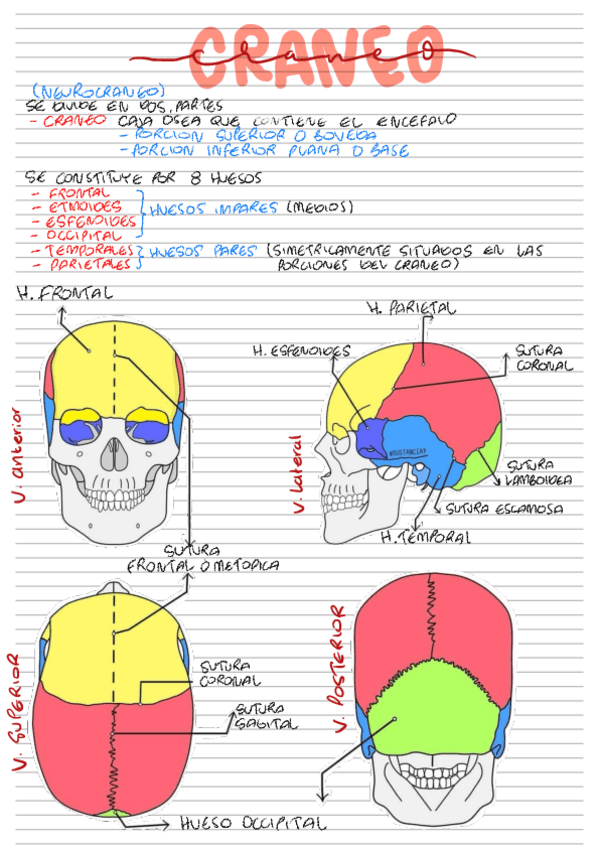 CRANEO
craneo
(NEUROCRANEO)
SE DIVIDE EN DOS PARTES
- CRANEO CAJA OSEA QUE CONTIENE EL ENCEFALO
- PORCION SUPERIOR O BOVEDA
- PORCION INFERIOR PLANA O BASE
SE CONSTITUYE POR 8 HUESOS
- FRONTAL
- ETMOIDES
- ESFENOIDES
- OCCIPITAL
HUESOS IMPARES (MEDIOS)
- TEMPORALES
- PARIETALES
HUESOS PARES (SIMETRICAMENTE SITUADOS EN LAS
PORCIONES DEL CRANEO)
H. FRONTAL
V. anterior
SUTURA
FRONTAL O METOPICA
H. PARIETAL
H. ESFENOIDES
SUTURA
CORONAL
V. Lateral
SUTURA
LAMBOIDEA
SUTURA ESCAMOSA
H. TEMPORAL
V. SUPERIOR
SUTURA
CORONAL
SUTURA
SAGITAL
V. POSTERIOR
HUESO OCCIPITAL